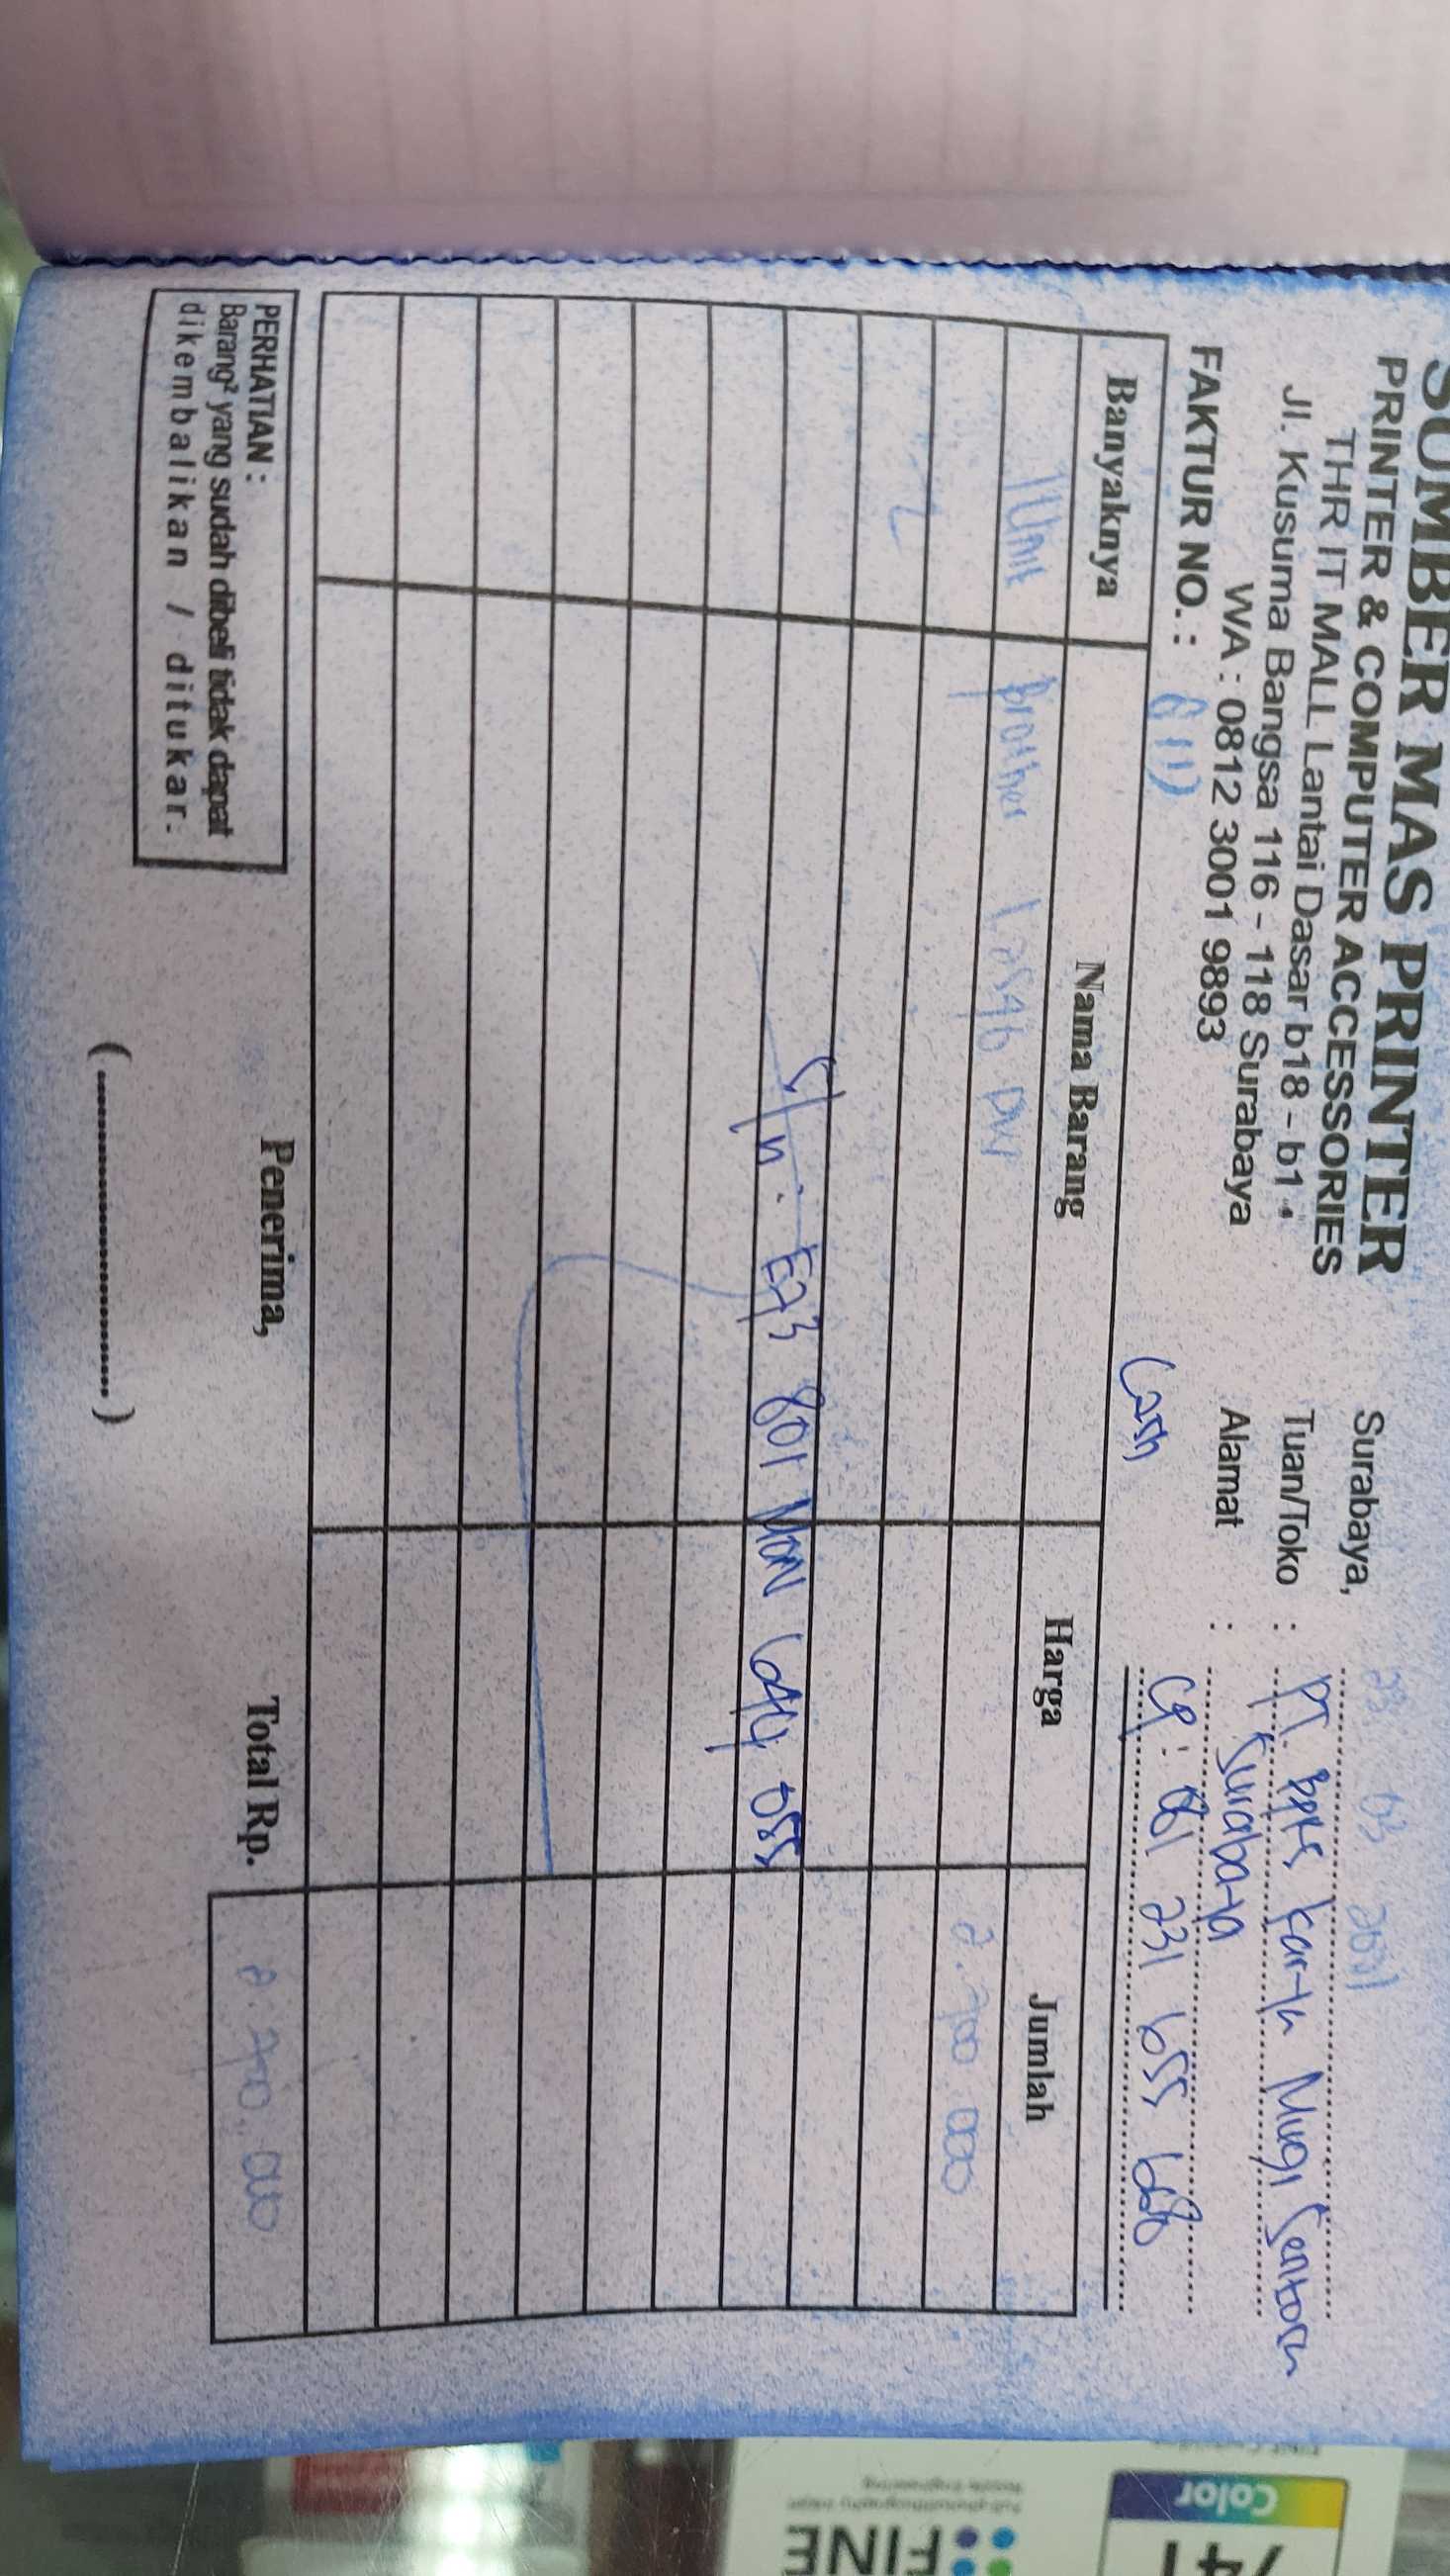 SUMBER MAS PRINTER
PRINTER & COMPUTER ACCESSORIES
THR IT MALL Lantai Dasar b18 - b1
Jl. Kusuma Bangsa 116 - 118 Surabaya
WA : 0812 3001 9893
Surabaya, 23 03 2021
Tuan/Toko : PT. BPRS Karya Mugi Sentosa
Alamat : Surabaya
CP : 081 231 655 628
FAKTUR NO. : 6111
Cash
Banyaknya Nama Barang Harga Jumlah
1 Unit brother 2.700.000
S/n : E73 801 044 055
PERHATIAN :
Barang² yang sudah dibeli tidak dapat
dikembalikan / ditukar.
Penerima,
Total Rp. 2.700.000
(........................)
Color
741
FINE